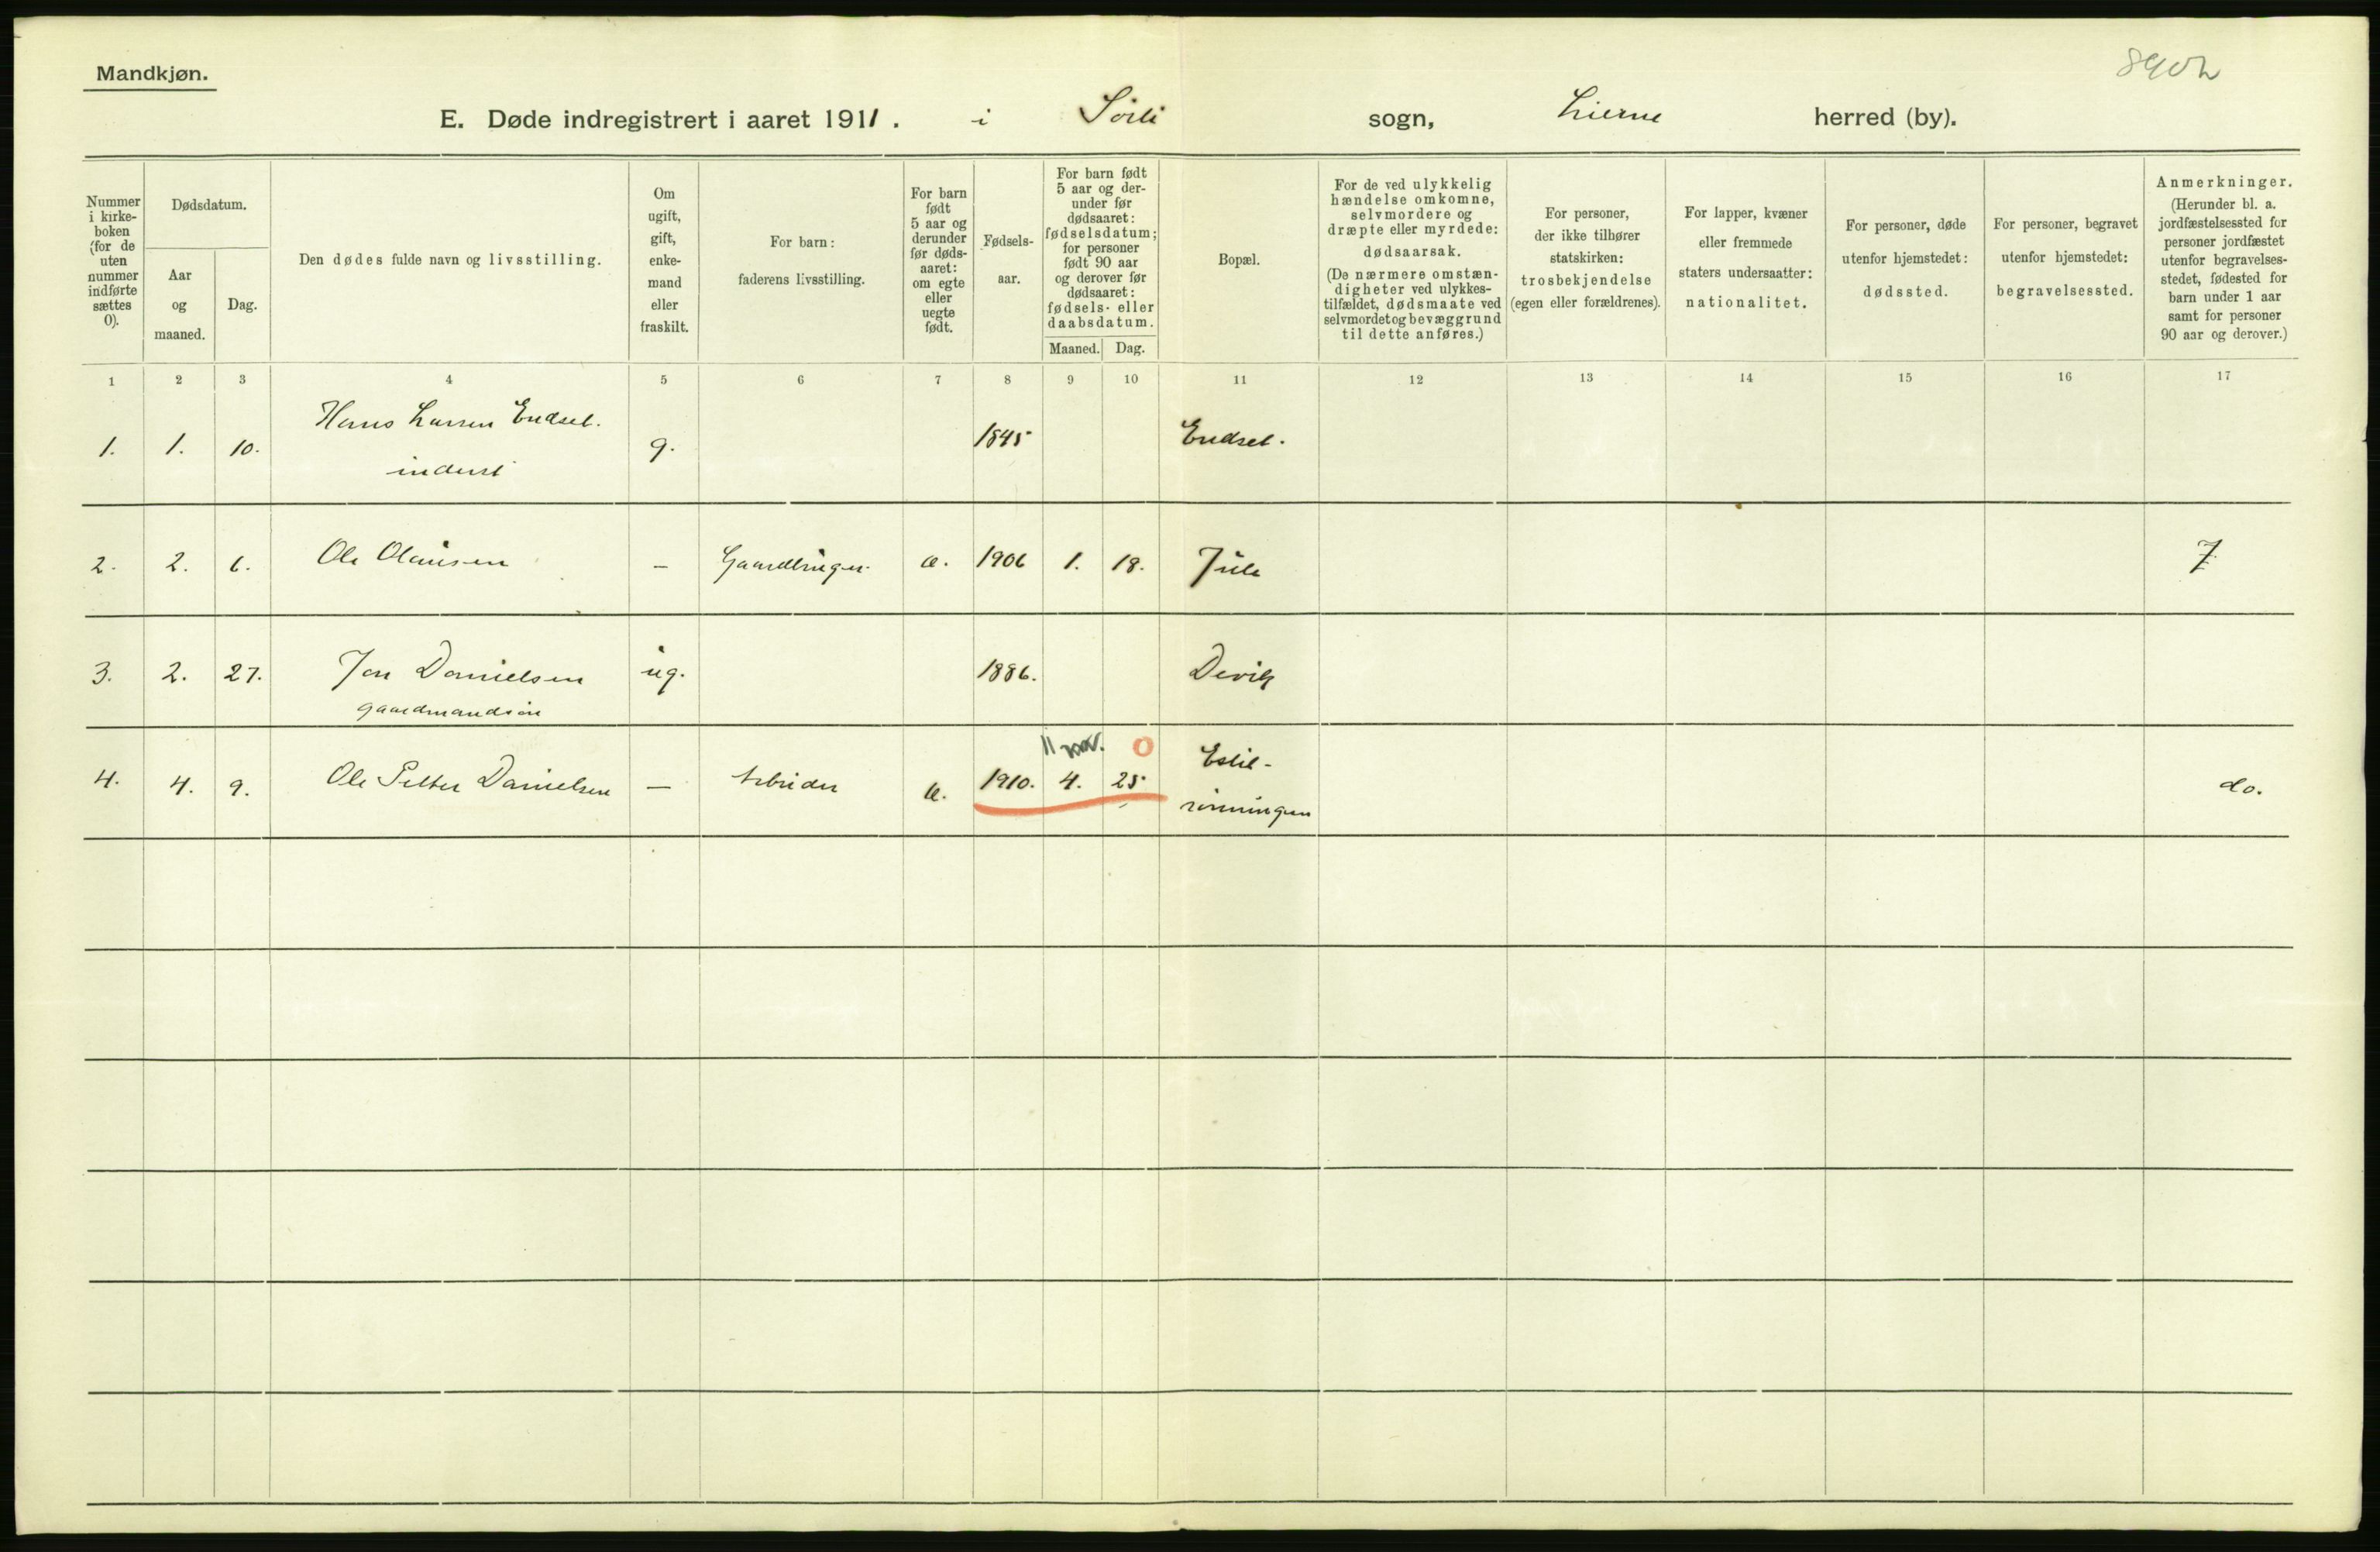 Mandkjøn.
8902
E. Døde indregistrert i aaret 1911. i Sörli sogn, Lierne herred (by).
Nummer i kirke-boken (for de uten nummer indførte sættes 0).
Dødsdatum.
Aar og maaned.
Dag.
Den dødes fulde navn og livsstilling.
Om ugift, gift, enke-mand eller fraskilt.
For barn: faderens livsstilling.
For barn født 5 aar og derunder før døds-aaret: om egte eller uegte født.
Fødsels-aar.
For barn født 5 aar og der-under før dødsaaret: fødselsdatum; for personer født 90 aar og derover før dødsaaret: fødsels- eller daabsdatum.
Maaned. Dag.
Bopæl.
For de ved ulykkelig hændelse omkomne, selvmordere og dræpte eller myrdede: dødsaarsak. (De nærmere omstæn-digheter ved ulykkes-tilfældet, dødsmaate ved selvmordet og bevæggrund til dette anføres.)
For personer, der ikke tilhører statskirken: trosbekjendelse (egen eller forældrenes).
For lapper, kvæner eller fremmede staters undersaatter: nationalitet.
For personer, døde utenfor hjemstedet: dødssted.
For personer, begravet utenfor hjemstedet: begravelsessted.
Anmerkninger. (Herunder bl. a. jordfæstelsessted for personer jordfæstet utenfor begravelses-stedet, fødested for barn under 1 aar samt for personer 90 aar og derover.)
1 2 3 4 5 6 7 8 9 10 11 12 13 14 15 16 17
1. 1. 10. Hans Larsen Endsel. g. 1845 Endsel.
inderst
2. 2. 6. Ole Olausen — Gaardbruger æ. 1906 1. 18. Jule 7
3. 2. 27. Jon Danielsen ug. 1886. Devik
gaardmandsön
11 0
4. 4. 9. Ole Petter Danielsen — Arbeider æ. 1910. 4. 25 Estil-
rönningen do.